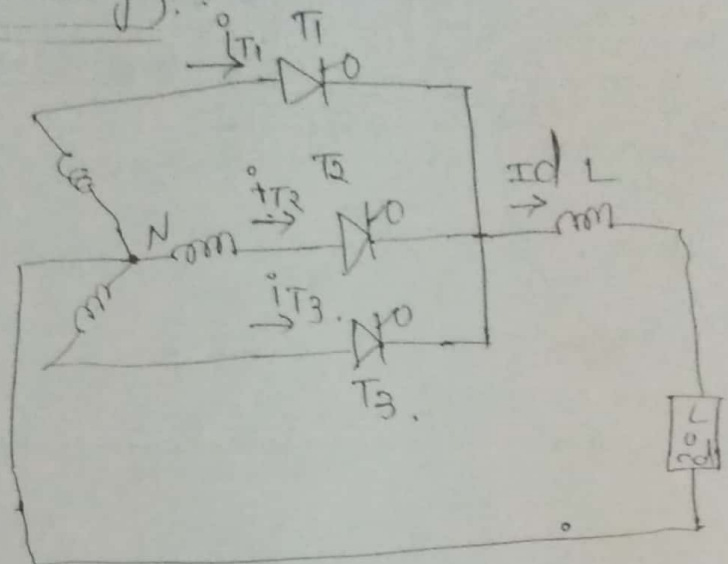 iT1
T1
iT2
T2
Id L
N
iT3.
T3.